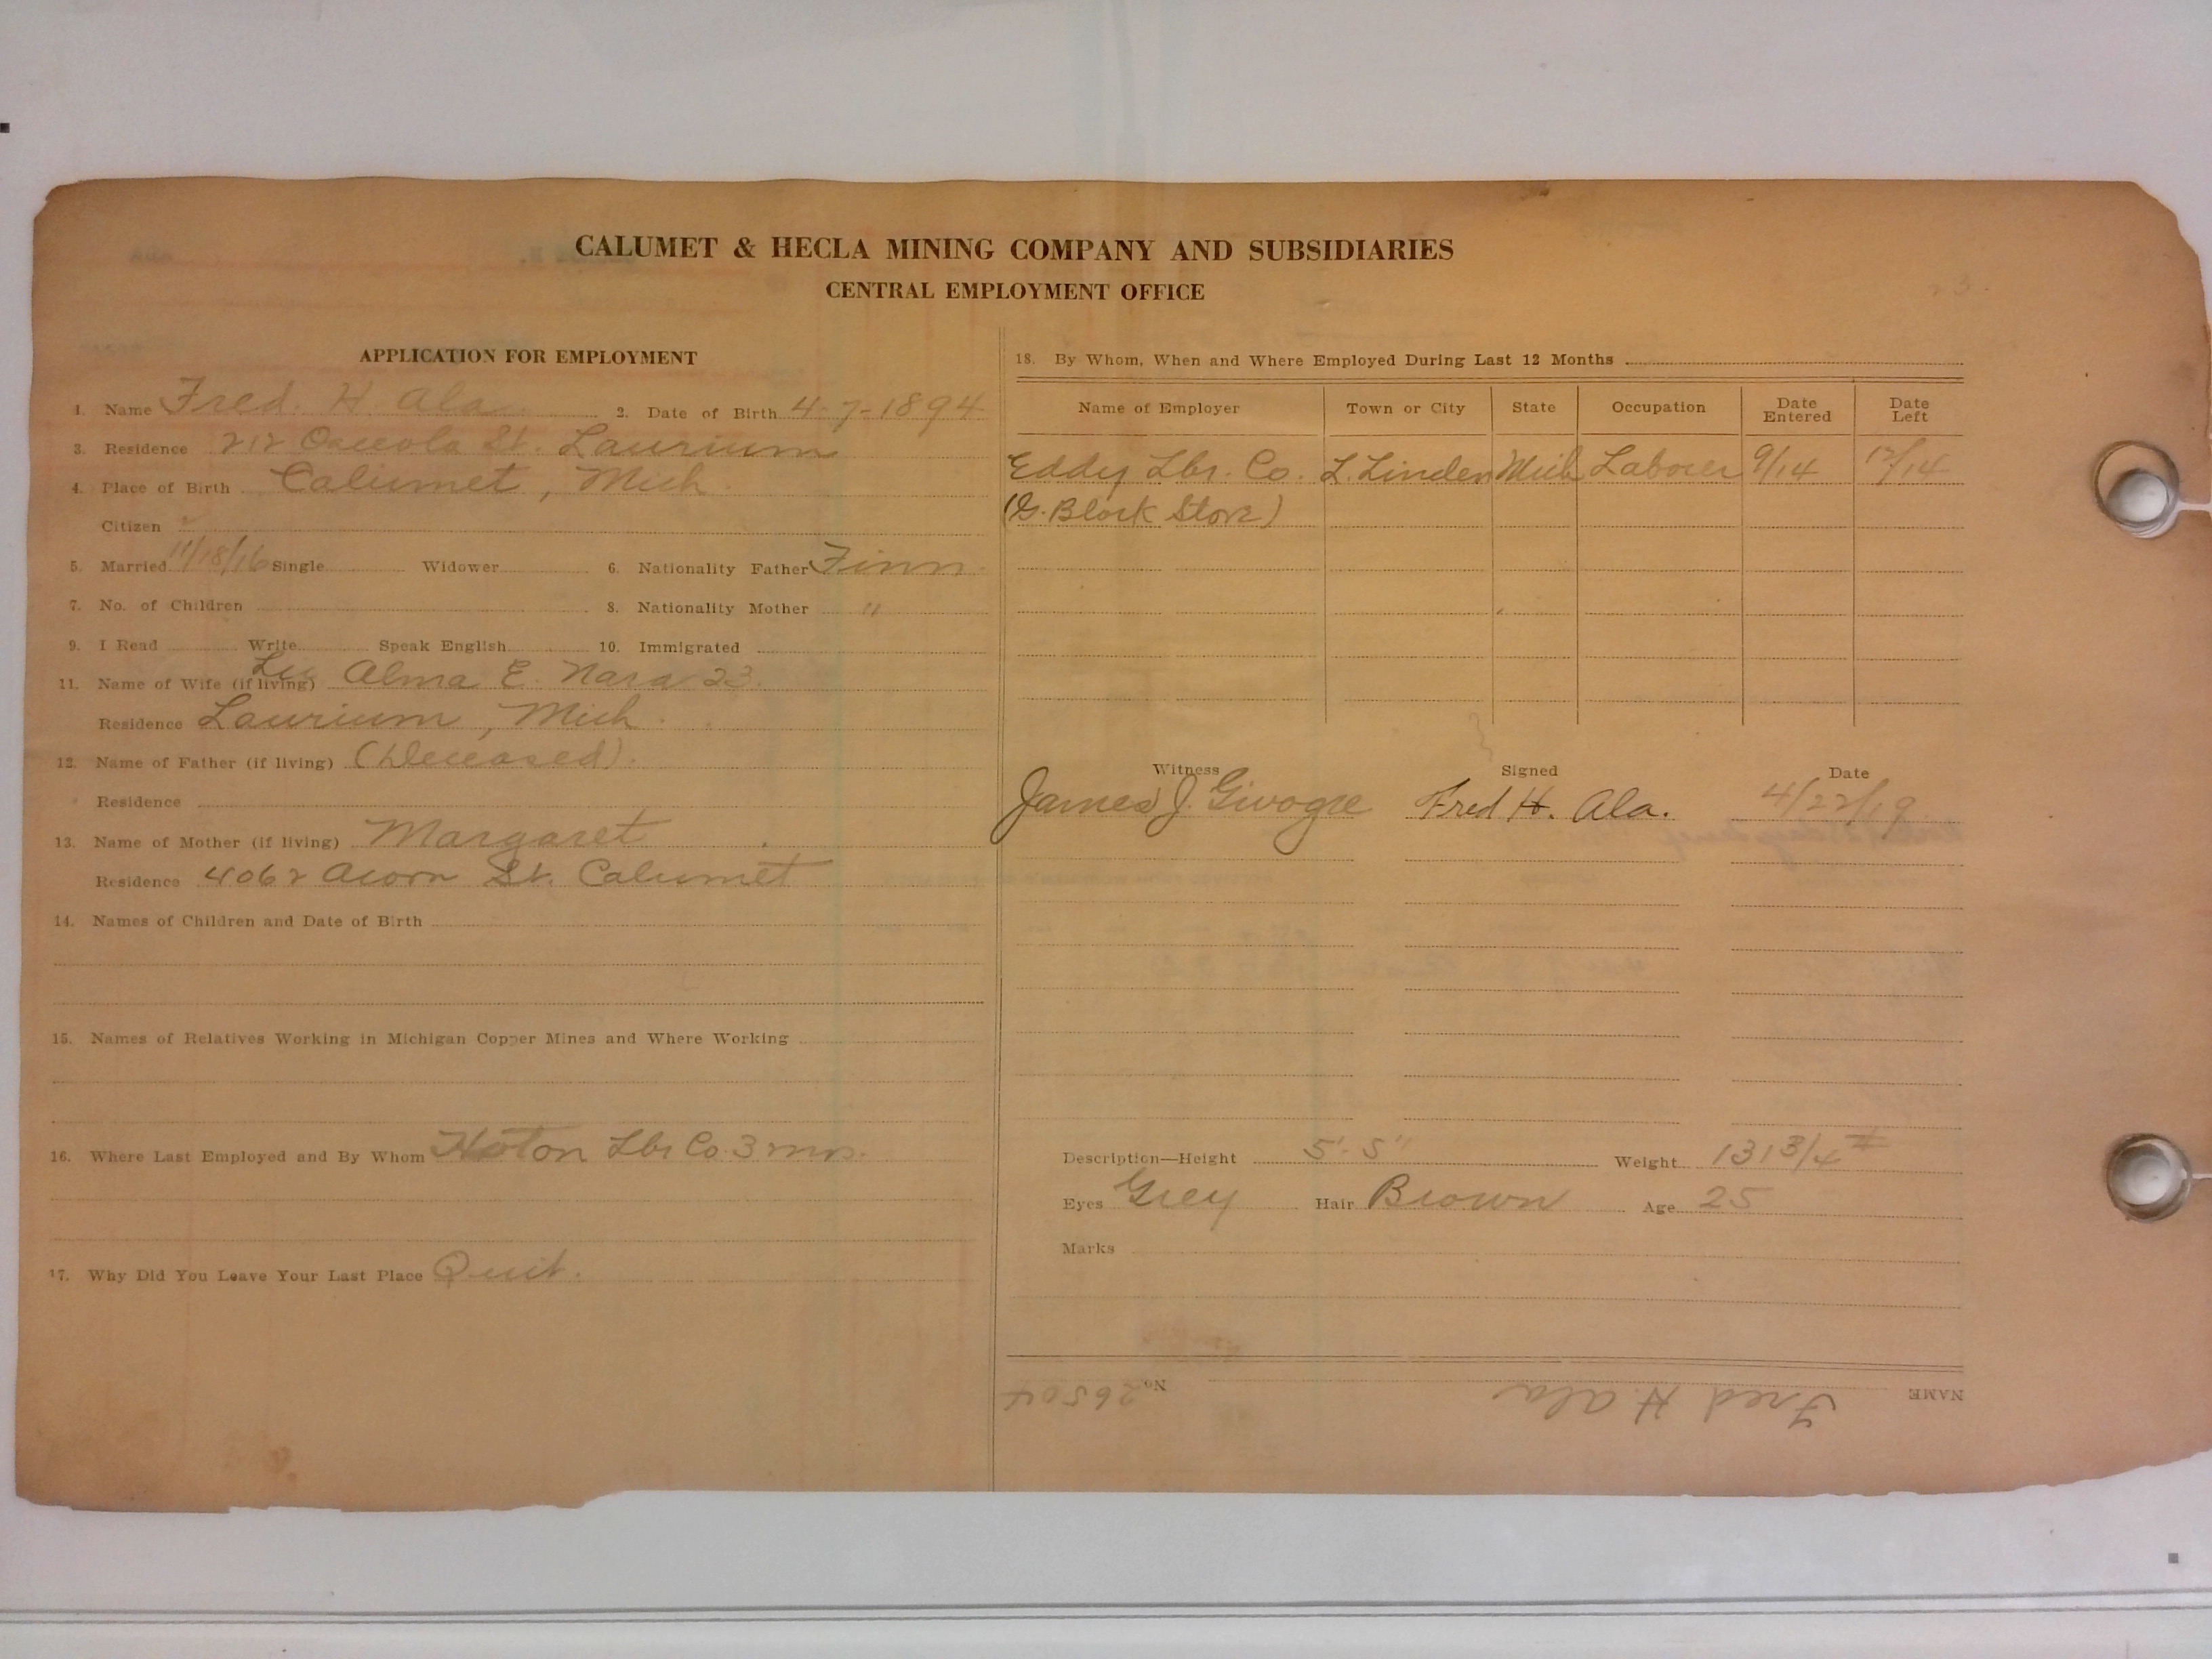 CALUMET & HECLA MINING COMPANY AND SUBSIDIARIES
CENTRAL EMPLOYMENT OFFICE
APPLICATION FOR EMPLOYMENT
1. Name Fred. H. Ala 2. Date of Birth 4-7-1894
3. Residence 212 Osceola St. Laurium
4. Place of Birth Calumet, Mich.
Citizen
5. Married 11/18/16 Single Widower 6. Nationality Father Finn.
7. No. of Children 8. Nationality Mother "
9. I Read Write Speak English 10. Immigrated
11. Name of Wife (if living) Alma E. Nara 23.
Residence Laurium, Mich.
12. Name of Father (if living) (Deceased).
Residence
13. Name of Mother (if living) Margaret
Residence 4062 Acorn St. Calumet
14. Names of Children and Date of Birth
15. Names of Relatives Working in Michigan Copper Mines and Where Working
16. Where Last Employed and By Whom Lbr Co. 3 mos.
17. Why Did You Leave Your Last Place Quit.
18. By Whom, When and Where Employed During Last 12 Months
Name of Employer Town or City State Occupation Date Entered Date Left
Eddy Lbr. Co. L. Linden Mich Laborer 9/14 12/14
(G. Block Store)
Witness Signed Date
James J. Fred H. Ala. 4/22/19
Description—Height 5'-5" Weight 131 3/4 #
Eyes Grey Hair Brown Age 25
Marks
NAME Fred H Ala No. 26504